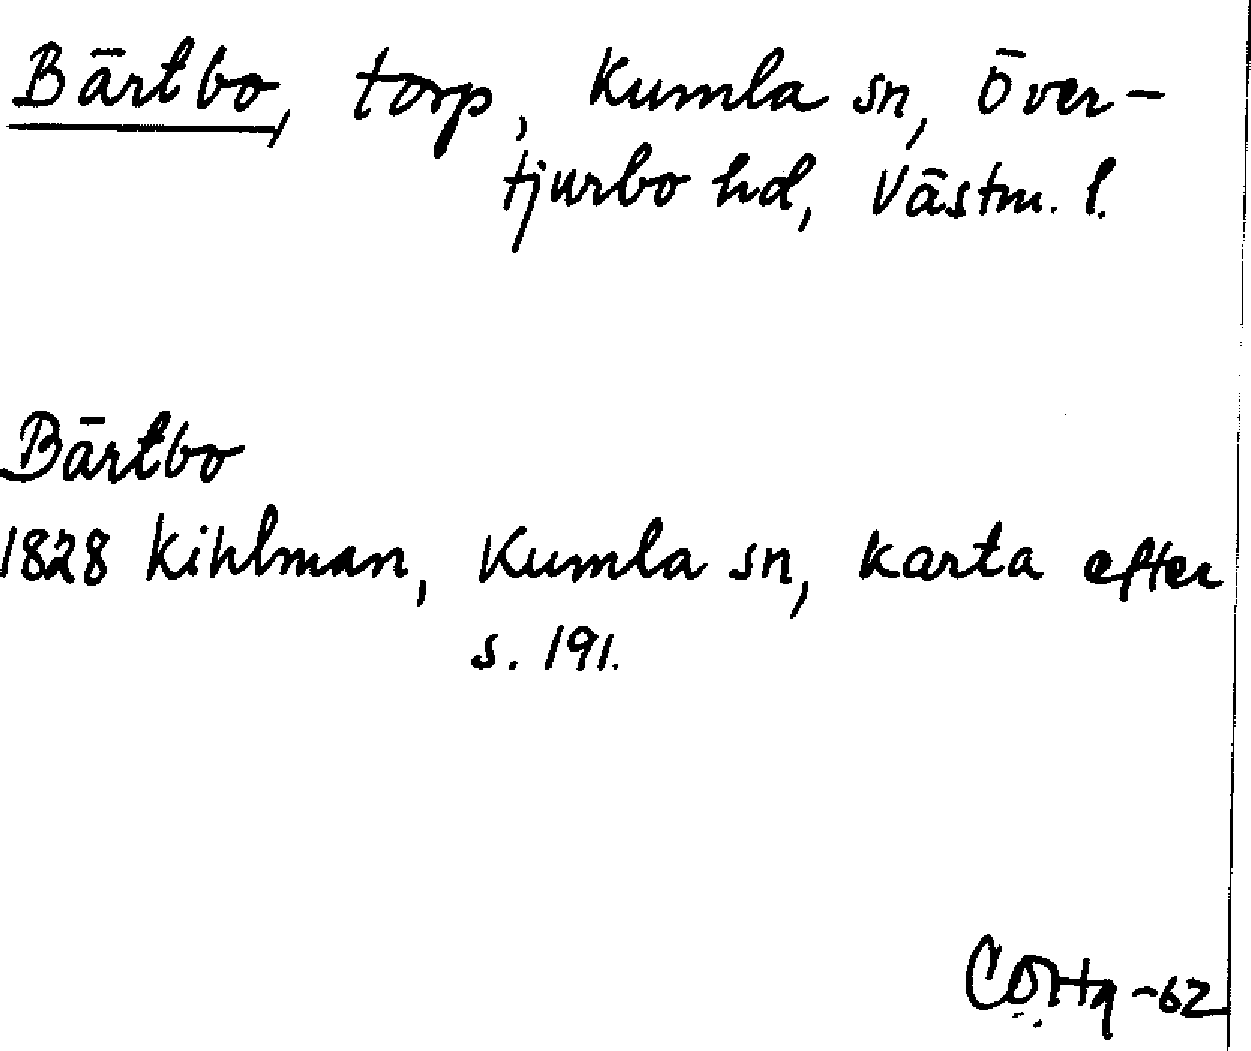 Bärtbo, torp, Kumla sn, Över-
tjurbo hd, Västm. l.
Bärtbo
1828 Kihlman, Kumla sn, karta efter
s. 191.
-62